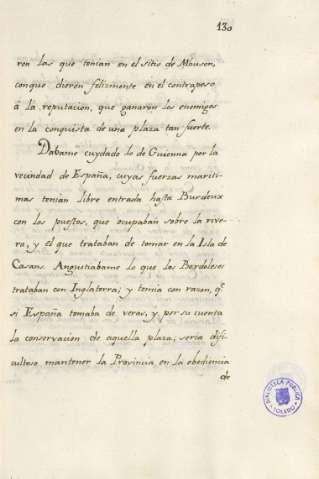 130
ron las que tenian en el sitio de Mouson,
conque dieron felizmente en el contrapeso
â la reputacion, que ganaron los enemigos
en la conquista de una plaza tan fuerte.
Dabame cuydado lo de Guienna por la
vecindad de España, cuyas fuerzas mariti-
mas tenian libre entrada hasta Burdeux
con los puestos, que ocupaban sobre la rive-
ra, y el que trataban de tomar en la Isla de
Casans. Angustiabame lo que los Bordeleses
trataban con Inglaterra; y temia con razon, qͤ
si España tomaba de veras, y por su cuenta
la conservacion de aquella plaza, seria difi-
cultoso mantener la Provincia en la obediencia
de
BIBLIOTECA PUBLICA
TOLEDO